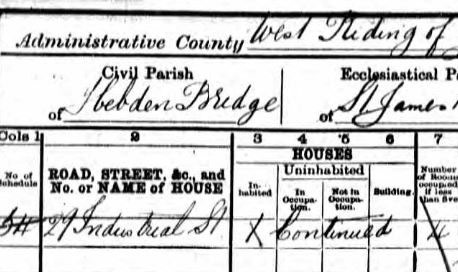 Administrative County West Riding of
Civil Parish
Ecclesiastical P
of Hebden Bridge
of St James
Cols 1 2 3 4 5 6 7
HOUSES
No. of Schedule
ROAD, STREET, &c., and No. or NAME of HOUSE
In-habited
Uninhabited
In Occupa-tion.
Not in Occupa-tion.
Building.
Number of Rooms occupied if less than five
54 29 Industrial St X Continued 4